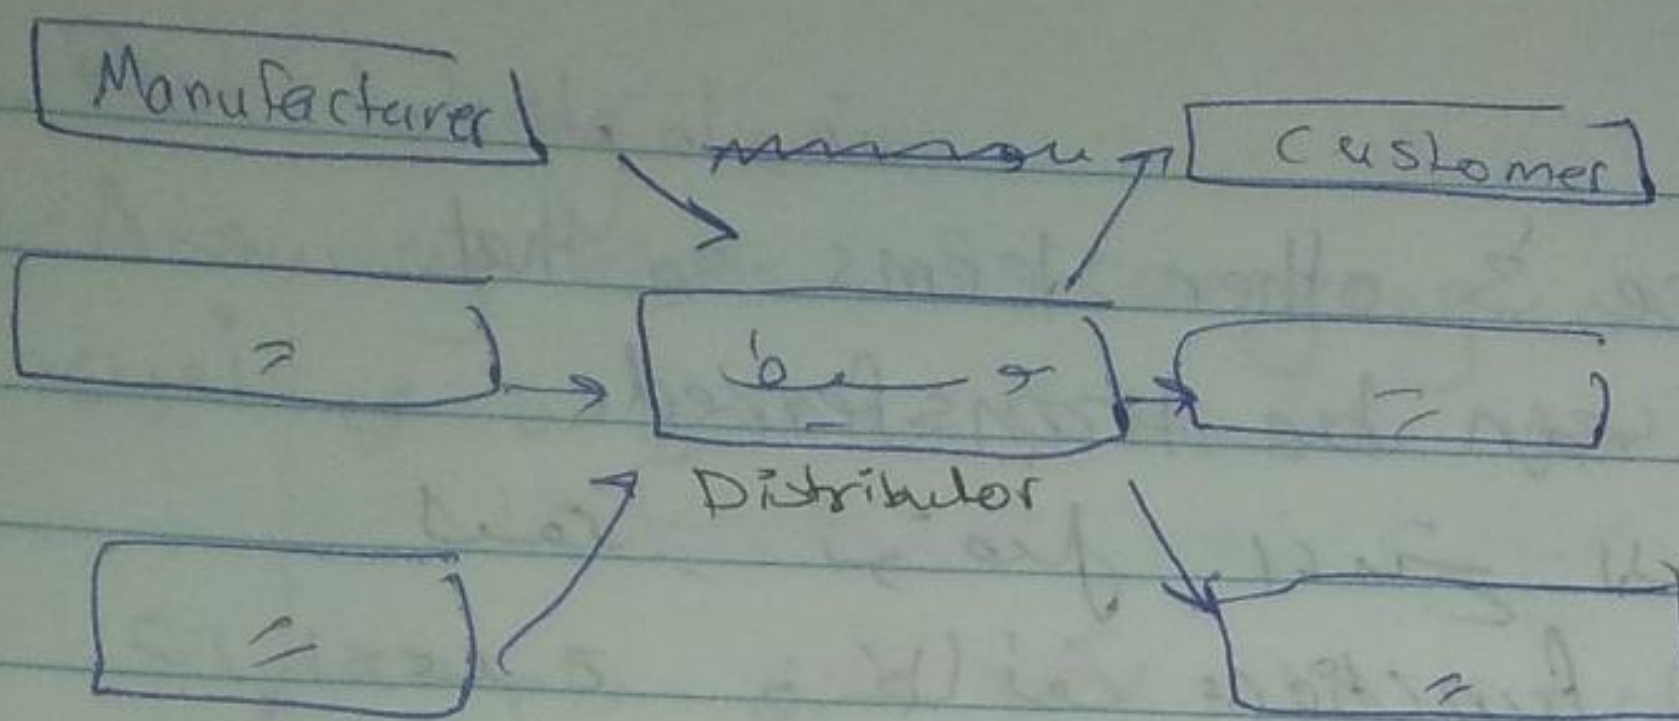 Manufacturer
Customer
=
وسيط
=
Distributor
=
=